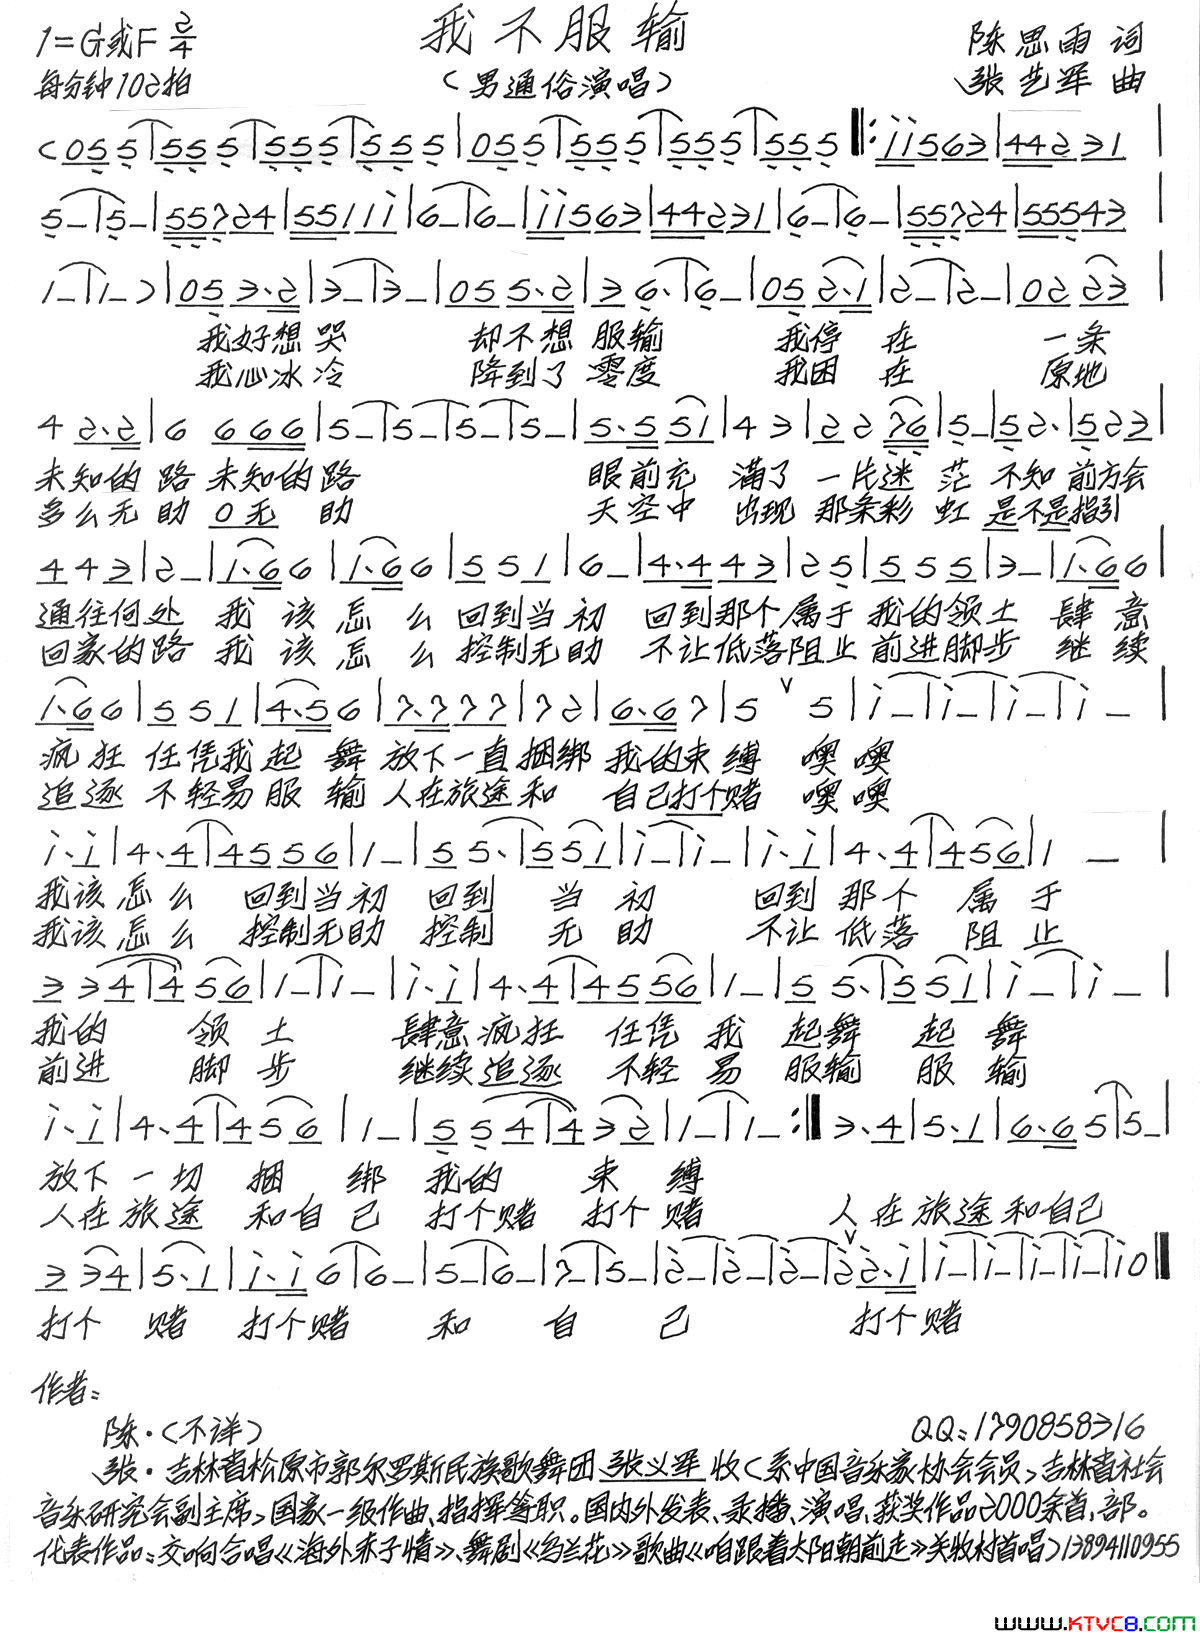 我不服输
1=G或F 2/4
陈思雨 词
每分钟102拍
(男通俗演唱)
张艺军 曲
(055 555 555 555|055 555 555 555‖:i i563|442 31|
5–|5–|557 24|5511 i|6–|6–|i i563|442 31|6–|6–|557 24|55543|
1–|1–)|055 3·2|3–|3–|055 5·2|3 6·|6–|055 2·1|2–|2–|02 23|
我好想哭 却不想 服输 我停 在 一条
我心冰冷 降到了 零度 我困 在 原地
4 2·2|6 666|5–|5–|5–|5–|5·5 51|4 3|22 76|5–|52·|523|
未知的 路 未知的路 眼前充 满了 一片迷 茫 不知 前方会
多么无 助 0无 助 天空中 出现 那条彩 虹 是不是指引
443|2–|1·66|1·66|551|6–|4·443|25|555|3–|1·66|
通往何处 我 该 怎 么 回到当 初 回到那个属于 我的领土 肆 意
回家的路 我 该 怎 么 控制无助 不让低落阻止 前进脚步 继 续
1·66|551|4·56|7·777|72|6·67|5 ∨ 5|i–|i–|i–|i –|
疯 狂 任凭我 起 舞 放下一直捆绑 我的束 缚 噢噢
追逐 不轻易服 输 人在旅途和 自己打个赌 噢噢
i·i|4·4|4556|1–|55·|551|i–|i–|i·i|4·4|456|1 –|
我该怎么 回到当初 回到 当 初 回到 那 个 属 于
我该怎么 控制无助 控制 无 助 不让 低落 阻 止
334|456|1–|1–|i·i|4·4|4556|1–|55·|551|i–|i –|
我的 领 土 肆意疯狂 任凭 我 起舞 起 舞
前进 脚 步 继续追逐 不轻 易 服输 服 输
i·i|4·4|456|1–|554|432|1–|1–:‖3·4|5·1|6·65|5–|
放下一切 捆 绑 我的 束 缚
人在旅途 和自己 打个赌 打个赌 人在旅途和自己
334|5·1|i·i6|6–|5–6–|7–|5–|2–|2–|2–|2 ∨ 2·i|i–|i–|i–|i–|i0‖
打个 赌 打个赌 和 自 己 打个赌
作者:
陈·(不详)
QQ:1790858316
张·吉林省松原市郭尔罗斯民族歌舞团张义军收(系中国音乐家协会会员,吉林省社会
音乐研究会副主席)国家一级作曲、指挥等职。国内外发表、录播、演唱、获奖作品2000余首,部。
代表作品:交响合唱《海外赤子情》、舞剧《乌兰花》歌曲《咱跟着太阳朝前走》关牧村首唱)13894110955
www.KTVC8.com